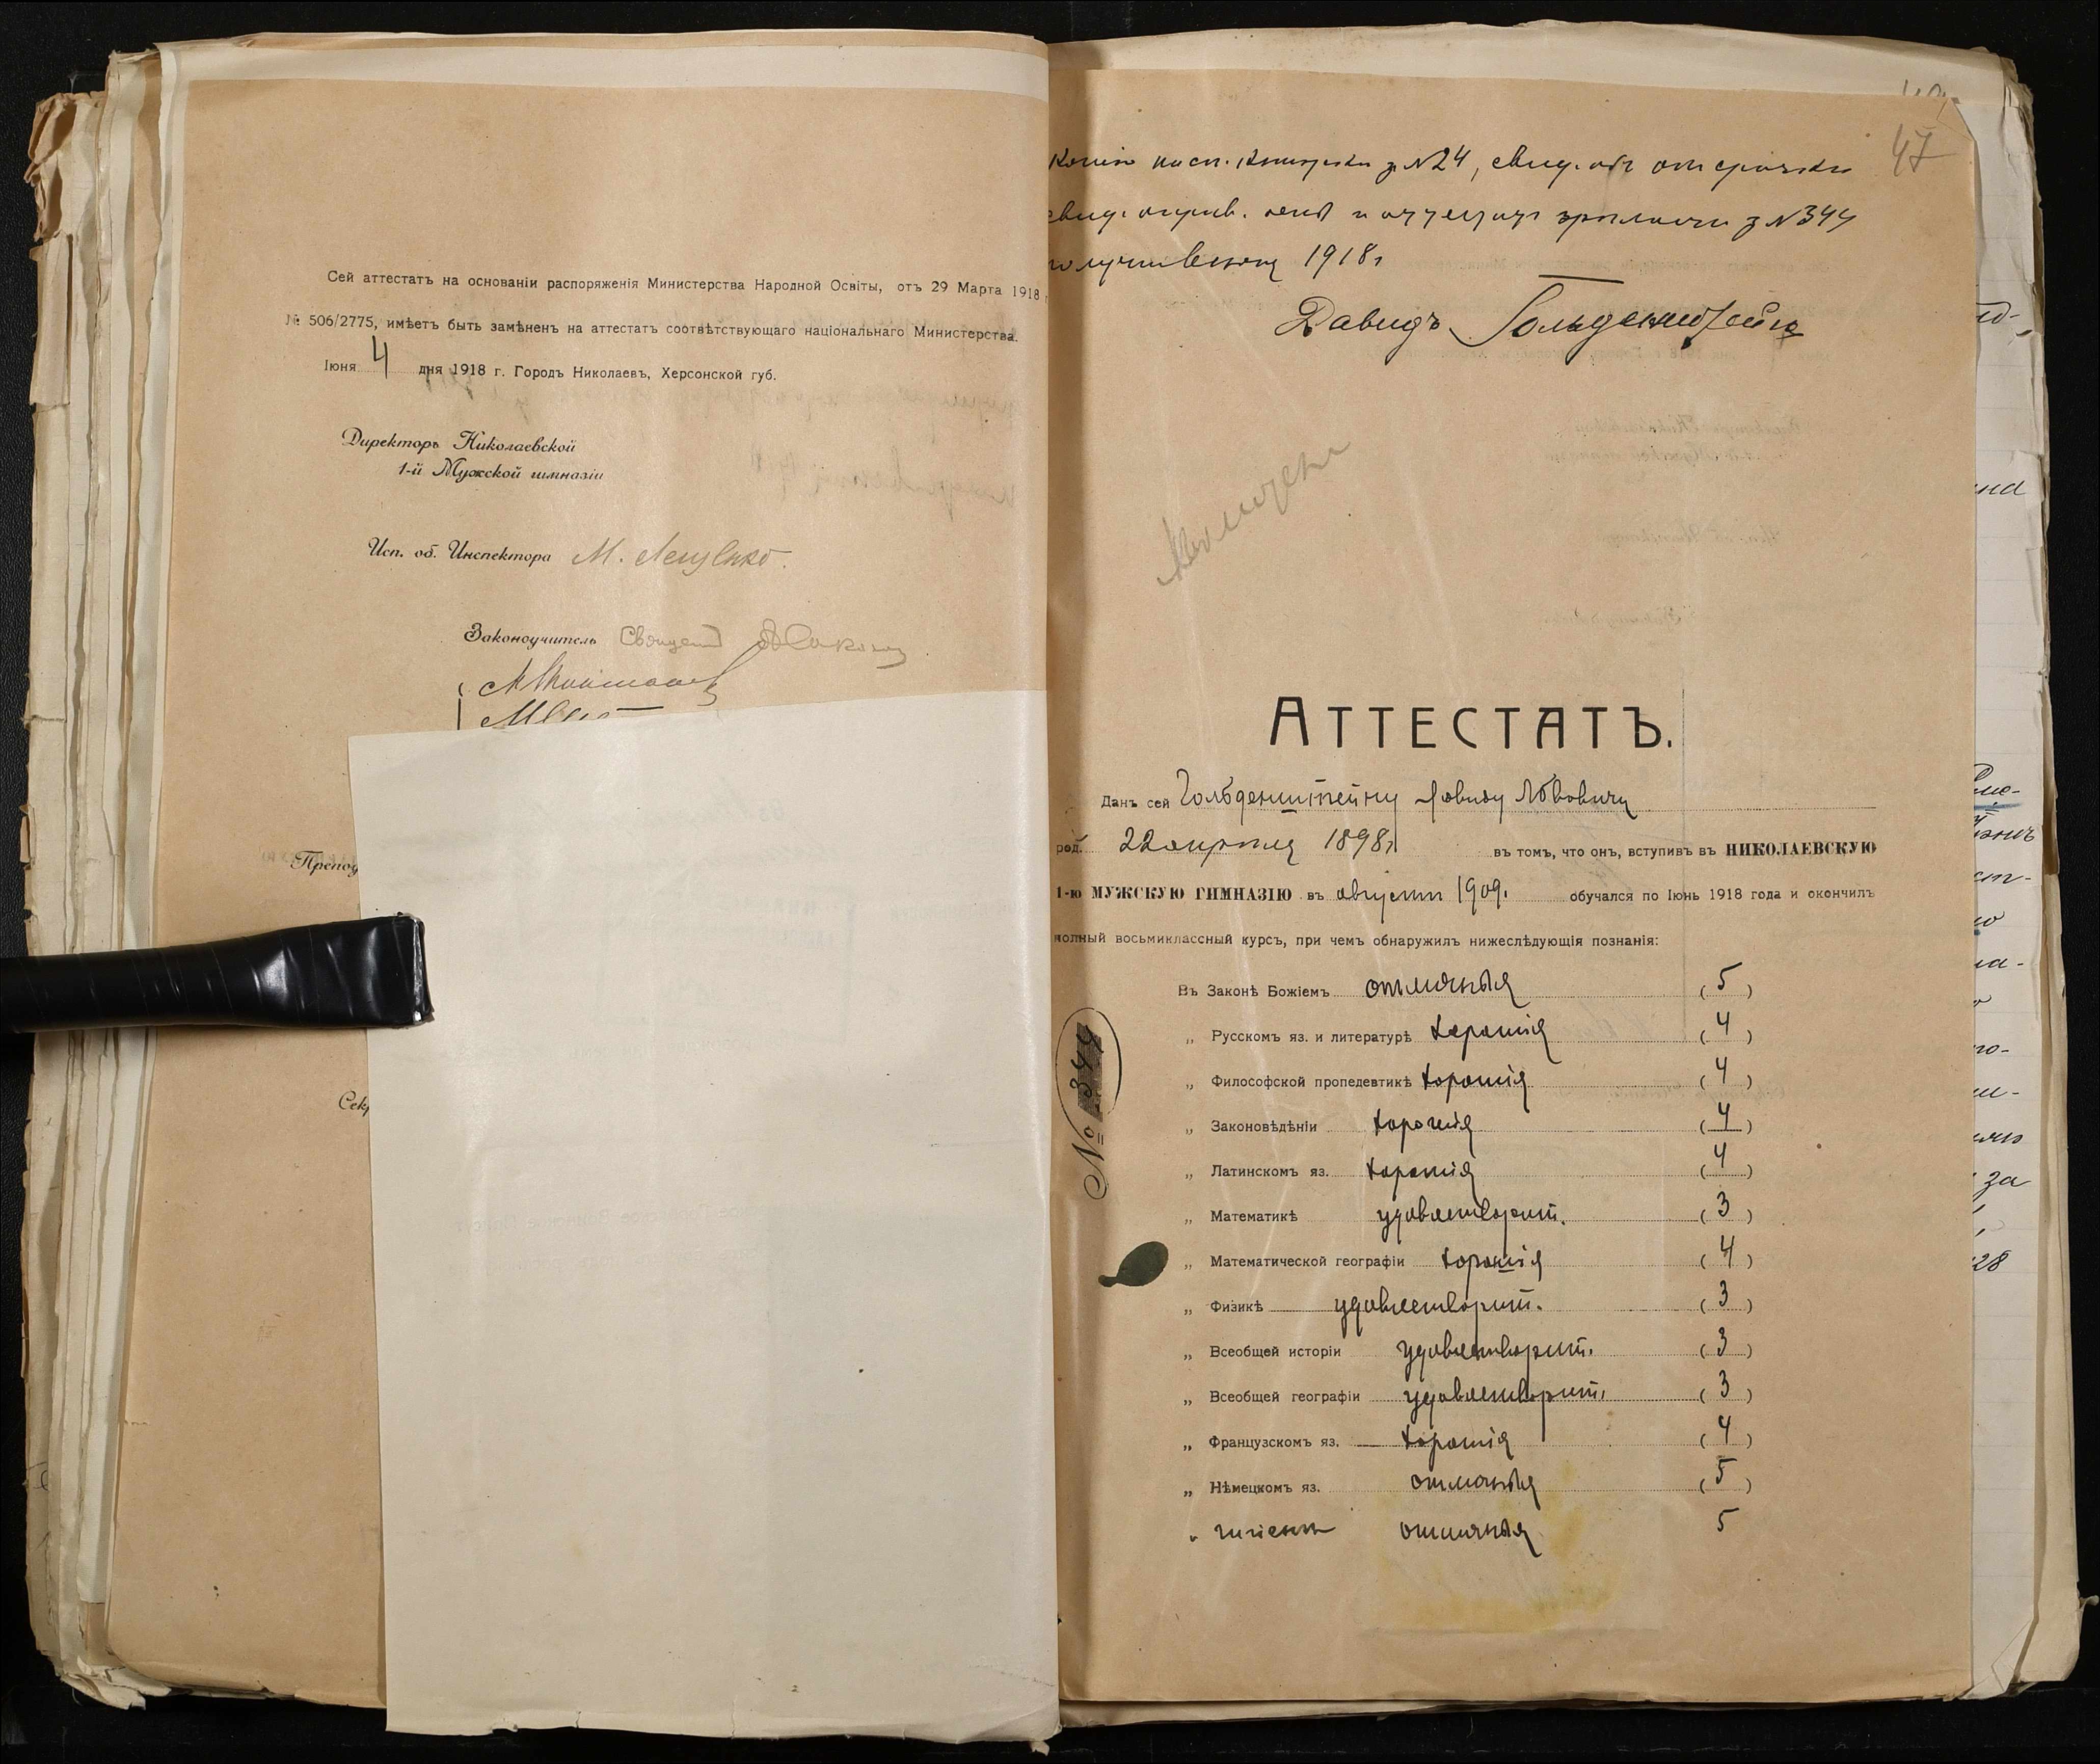 Сей аттестатъ на основаніи распоряженія Министерства Народной Освіты, отъ 29 Марта 1918
№ 506/2775, имѣетъ быть замѣненъ на аттестатъ соотвѣтствующаго національнаго Министерства.
Іюня 4 дня 1918 г. Городъ Николаевъ, Херсонской губ.
Директоръ Николаевской
1-й Мужской гимназіи
Исп. об. Инспектора М.
Законоучитель Священ
Препод
Сек
47
Копію з №24, свид. объ отсрочкѣ
свид. и аттестат зрѣлости з №344
1918 г
Давидъ Гольденштейнъ
АТТЕСТАТЪ.
Данъ сей Гольденштейну Давиду Львовичу
род. 22 апрѣля 1898 г. въ томъ, что онъ, вступивъ въ НИКОЛАЕВСКУЮ
1-ю МУЖСКУЮ ГИМНАЗІЮ въ августѣ 1909. обучался по Іюнь 1918 года и окончилъ
полный восьмиклассный курсъ, при чемъ обнаружилъ нижеслѣдующія познанія:
Въ Законѣ Божіемъ отличныя (5)
„ Русскомъ яз. и литературѣ хорошія (4)
„ Философской пропедевтикѣ хорошія (4)
„ Законовѣдѣніи хорошія (4)
„ Латинскомъ яз. хорошія (4)
„ Математикѣ удовлетворит. (3)
„ Математической географіи хорошія (4)
„ Физикѣ удовлетворит. (3)
„ Всеобщей исторіи удовлетворит. (3)
„ Всеобщей географіи удовлетворит. (3)
„ Французскомъ яз. хорошія (4)
„ Нѣмецкомъ яз. отличныя (5)
„ гигіенѣ отличныя 5
№ 344